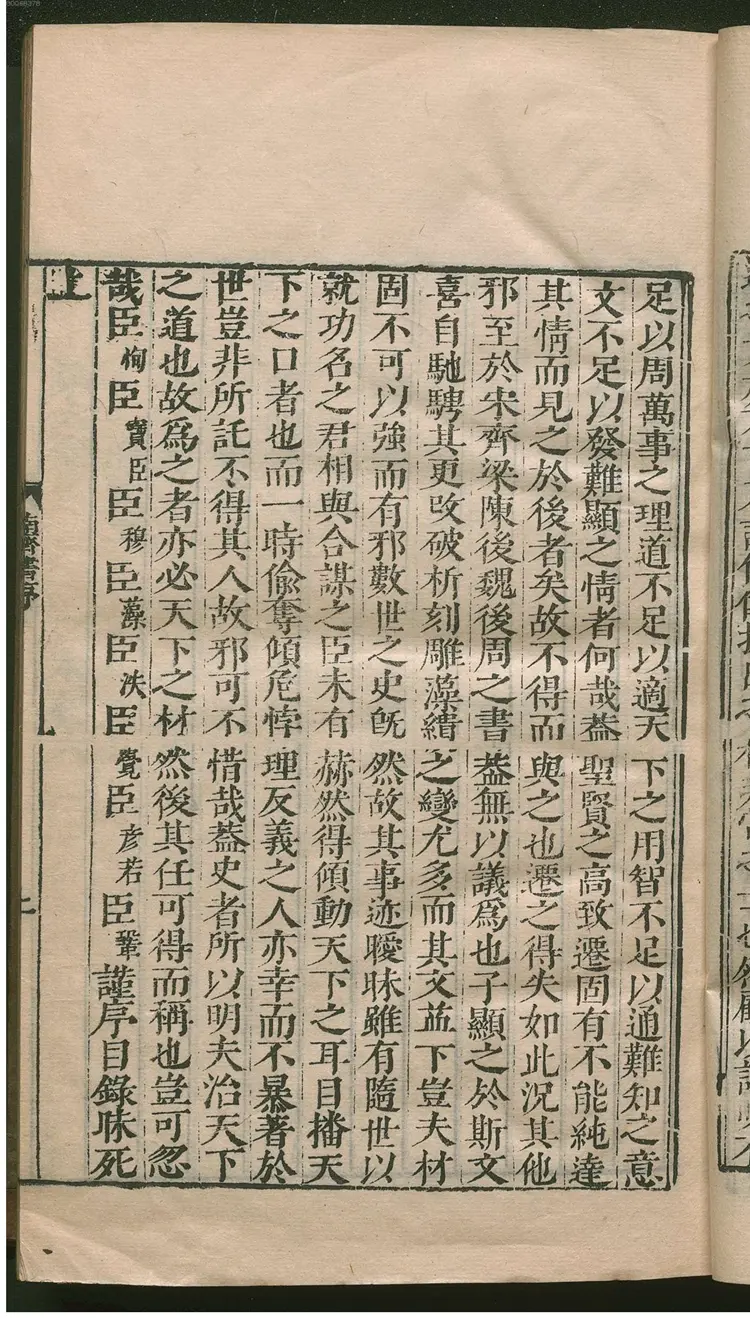 足以周萬事之理道不足以適天下之用智不足以通難知之意
文不足以發難顯之情者何哉葢聖賢之高致遷固有不能純達
其情而見之於後者矣故不得而與之也遷之得失如此況其他
邪至於宋齊梁陳後魏後周之書葢無以議爲也子顯之於斯文
喜自馳騁其更攺破析刻雕藻繢之變尤多而其文益下豈夫材
固不可以強而有邪數世之史旣然故其事迹曖昧雖有隨世以
就功名之君相與合謀之臣未有赫然得傾動天下之耳目播天
下之口者也而一時偷奪傾危悖理反義之人亦幸而不暴著於
世豈非所託不得其人故邪可不惜哉葢史者所以明夫治天下
之道也故爲之者亦必天下之材然後其任可得而稱也豈可忽
哉臣恂臣寶臣臣穆臣藻臣洙臣覺臣彦若臣鞏謹序目錄昧死
上
南齊書序
二